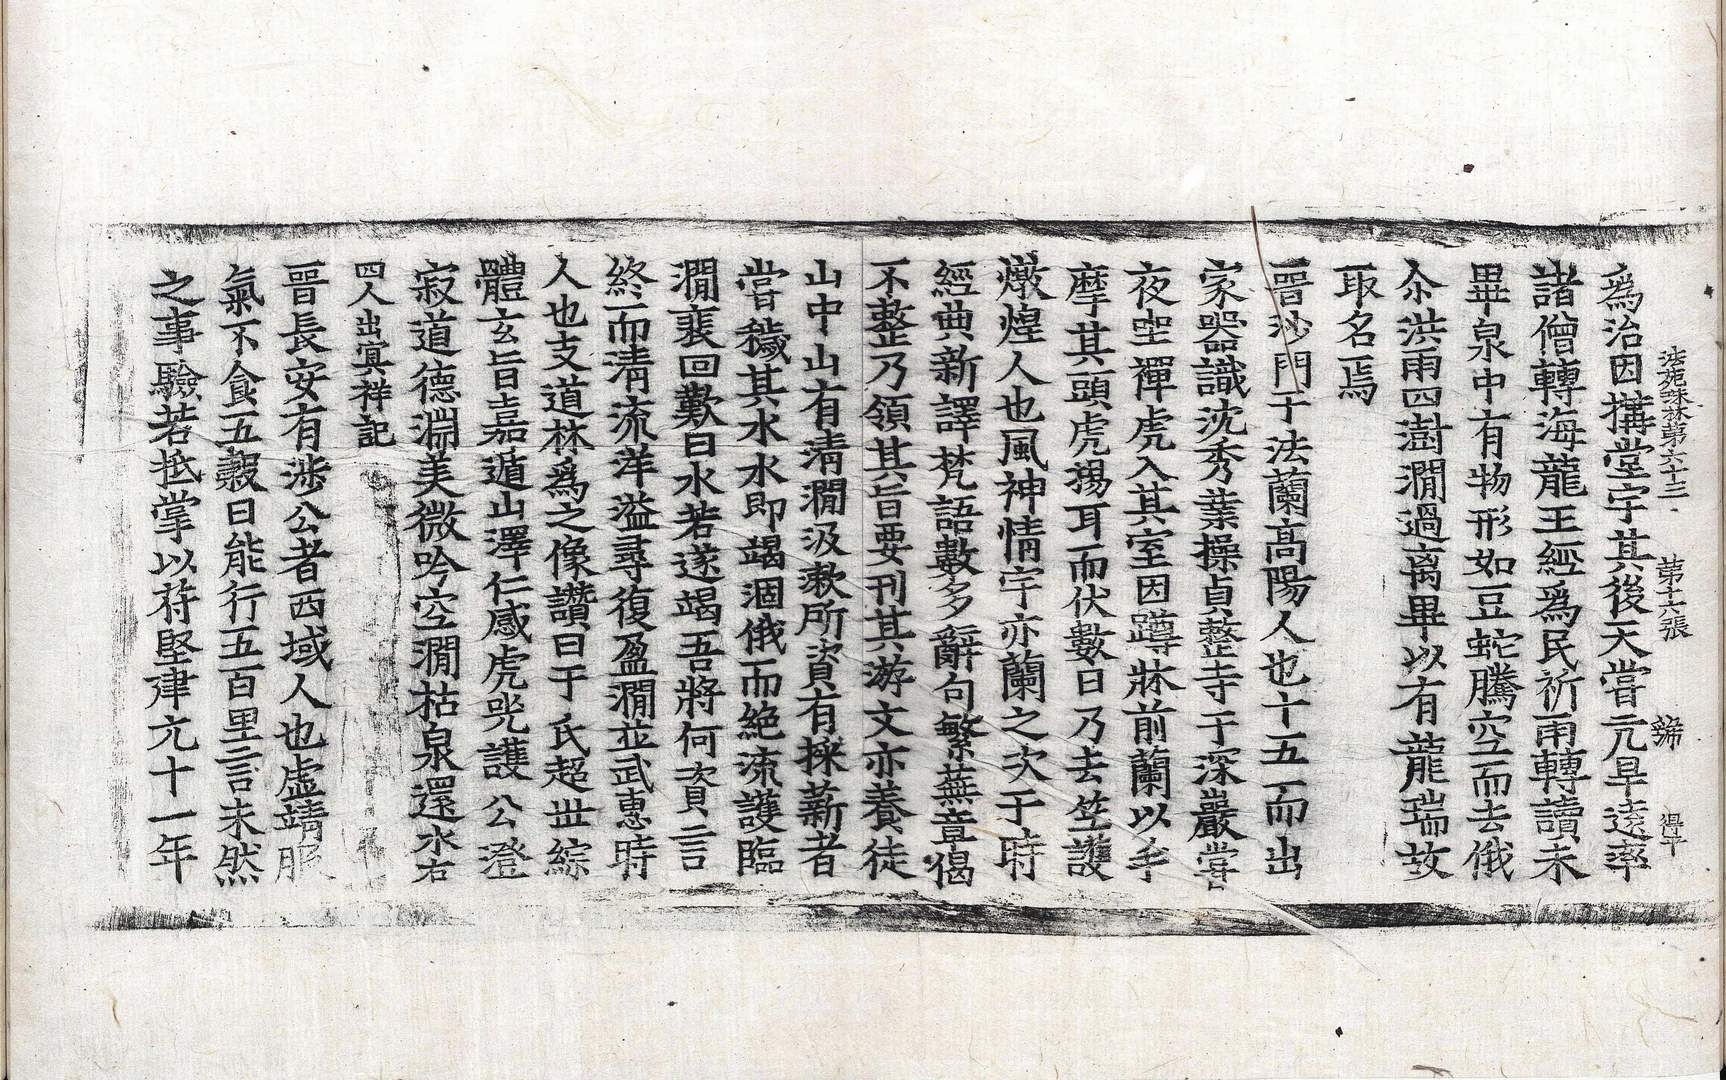 法苑珠林第六十三 第十六張 號 得平
爲治因搆堂宇其後天嘗亢旱遠率
諸僧轉海龍王經爲民祈雨轉讀未
畢泉中有物形如巨蛇騰空而去俄
尒洪雨四澍澗過离畢以有龍瑞故
取名焉
晉沙門于法蘭高陽人也十五而出
家器識沈秀業操貞整寺于深巖嘗
夜坐禪虎入其室因蹲牀前蘭以手
摩其頭虎揚耳而伏數日乃去竺護
燉煌人也風神情宇亦蘭之次于時
經典新譯梵語數多辭句繁蕪章偈
不整乃領其旨要刊其游文亦養徒
山中山有清澗汲漱所資有採薪者
嘗穢其水水即竭涸俄而絶流護臨
澗裵回歎曰水若遂竭吾將何資言
終而清流洋溢尋復盈澗並武惠時
人也支道林爲之像讚曰于氏超世綜
體玄旨嘉遁山澤仁感虎兕護公澄
寂道德淵美微吟空澗枯泉還水右
四人出冥祥記
晉長安有涉公者西域人也虛靖服
氣不食五穀日能行五百里言未然
之事驗若抵掌以苻堅建元十一年